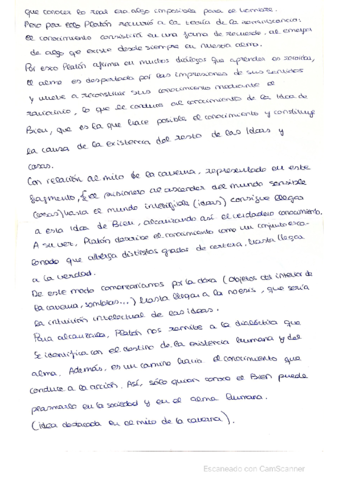 que conocer lo real era algo imposible para el hombre.
Pero por ello Platón recurrió a la teoría de la reminiscencia:
el conocimiento consistirá en una forma de recuerdo, al emerger
de algo que existe desde siempre en nuestra alma.
Por eso Platón afirma en muchos diálogos que aprender es recordar,
el alma es despertada por las impresiones de sus sentidos
y vuelve a reconstruir su conocimiento mediante el
raciocinio, lo que le conduce al conocimiento de la Idea de
Bien, que es la que hace posible el conocimiento y constituye
la causa de la existencia del resto de las Ideas y
cosas.
Con relación al mito de la caverna, representado en este
fragmento, el prisionero al ascender del mundo sensible
(cosas) hacia el mundo inteligible (ideas) consigue llegar
a esta Idea de Bien, alcanzando así el verdadero conocimiento.
A su vez, Platón describe el conocimiento como un conjunto esca-
lonado que alberga distintos grados de certeza, hasta llegar
a la verdad.
De este modo comenzaríamos por la doxa (objetos del interior de
la caverna, sombras...) hasta llegar a la noesis, que sería
la intuición intelectual de las ideas.
Para alcanzarla, Platón nos remite a la dialéctica que
se identifica con el destino de la existencia humana y del
alma. Además, es un camino hacia el conocimiento que
conduce a la acción. Así, sólo quien conoce el Bien puede
plasmarlo en la sociedad y en el alma humana.
(idea destacada en el mito de la caverna).
Escaneado con CamScanner